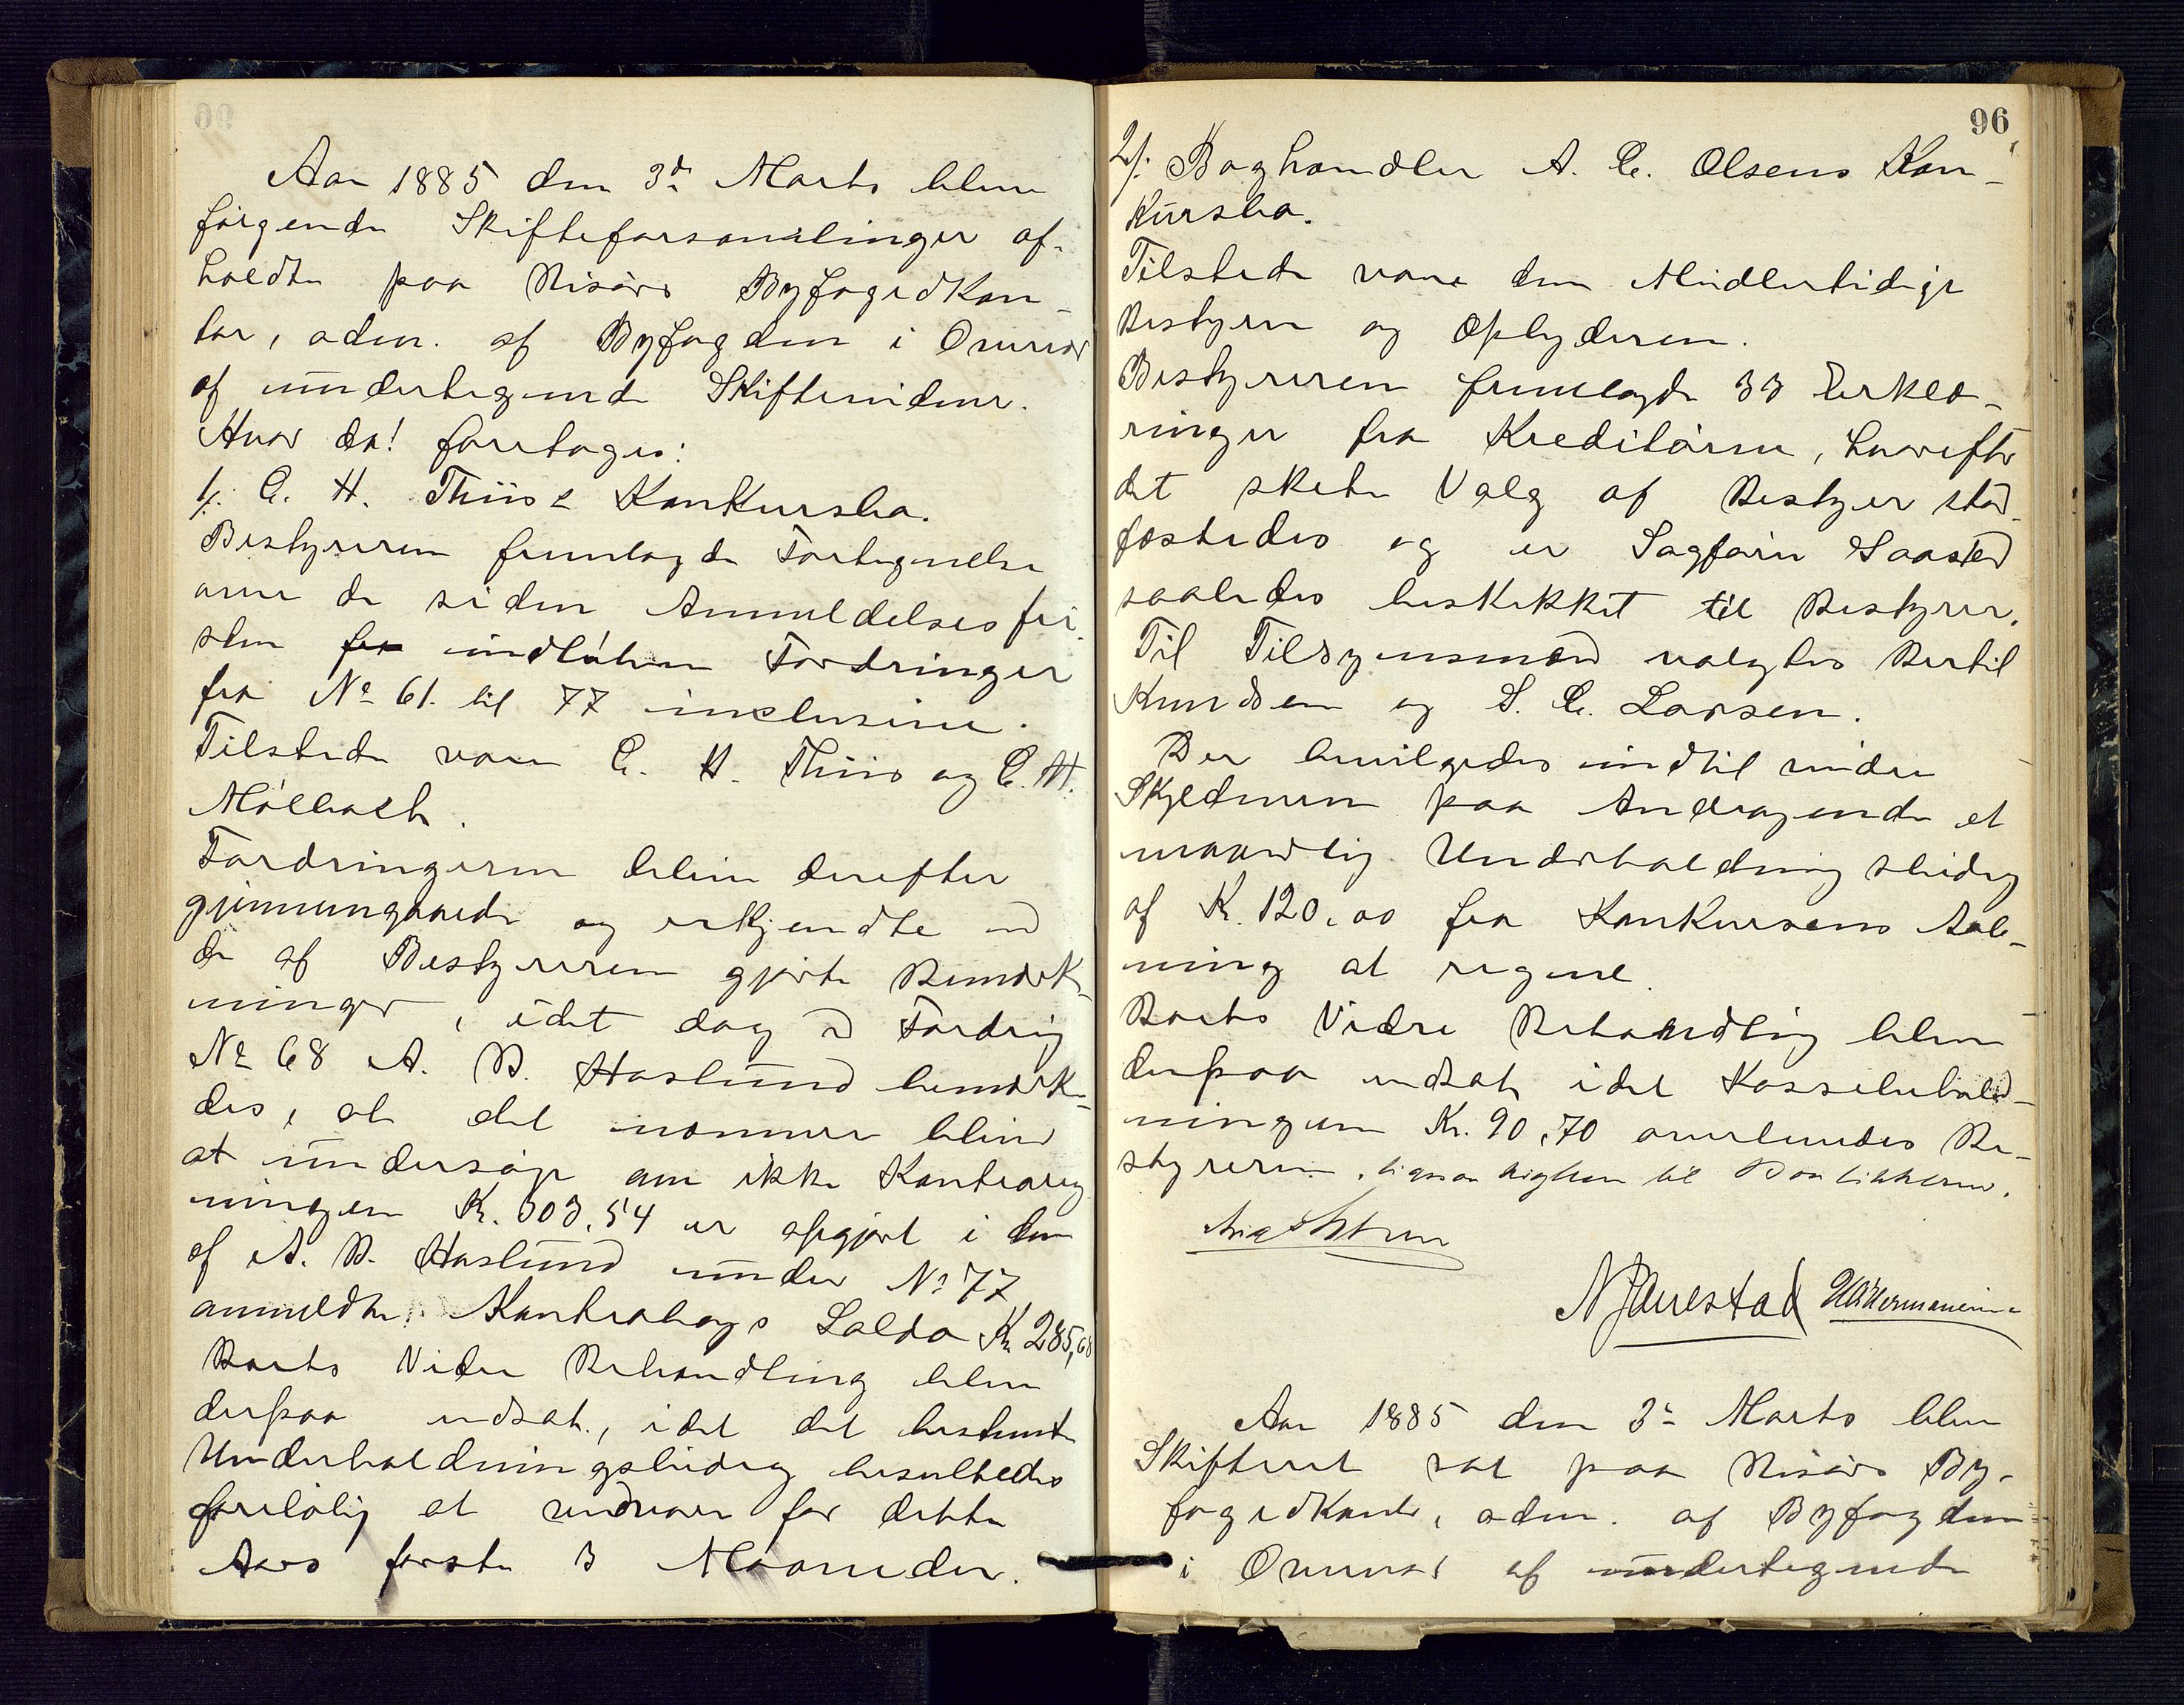 Aar 1885 den 3de Marts blev
følgende Skifteforsamlinger af-
holdte paa Risørs Byfogedkon-
tor, adm. af Byfogden i Overvær
af undertegnede Skiftevidner.
Hvor da! foretoges:
1/. C. H. Thiis's Konkursbo.
Bestyreren fremlagde Fortegnelse
over de siden Anmeldelsesfri-
sten fra indløbne Fordringer
fra No 61. til 77 inclusive.
Tilstede vare C. H. Thiis og C. H.
Mølbach.
Fordringerne bleve derefter
gjennemgaaede og erkjendte med
de af Bestyreren gjorte Bemærk-
ninger, idet dog ved Fordring
No 68 A. B. Haslund bemærke-
des, at det nærmere bliver
at undersøge om ikke Kontrareg
ningen Kr. 303,54 er opgjort i den
af A. B. Haslund under No 77
anmeldte Kontrabogs Saldo Kr 285,68
Boets Videre Behandling blev
derpaa udsat, idet det bestemte
Underholdningsbidrag besluttedes
foreløbig at vedvare for dette
Aars første 3 Maaneder.
96
2/. Boghandler A. C. Olsens Kon-
kursbo.
Tilstede vare den Midlertidige
Bestyrer og Opbyderen.
Bestyreren fremlagde 33 Erklæ-
ringer fra Kreditorerne, hvorefter
det skete Valg af Bestyrer stad-
fæstedes og er Sagfører Saasted
saaledes beskikket til Bestyrer.
Til Tilsynsmænd valgtes Bertil
Knudsen og S. C. Larsen.
Der bevilgedes indtil videre
Skyldneren paa Andragende et
maanedlig Underholdning sbidrag
af Kr. 120,00 fra Konkursens Aab-
ning at regne.
Boets Videre Behandling blev
derpaa udsat, idet Kassebehold-
ningen Kr. 90,70 overleveredes Be-
styreren, ligesaa Nøglerne til Boutikkerne.
N Jaurestad
Aar 1885 den 3de Marts blev
Skifteret sat paa Risørs By-
fogedkontor, adm. af Byfogden
i Overvær af undertegnede